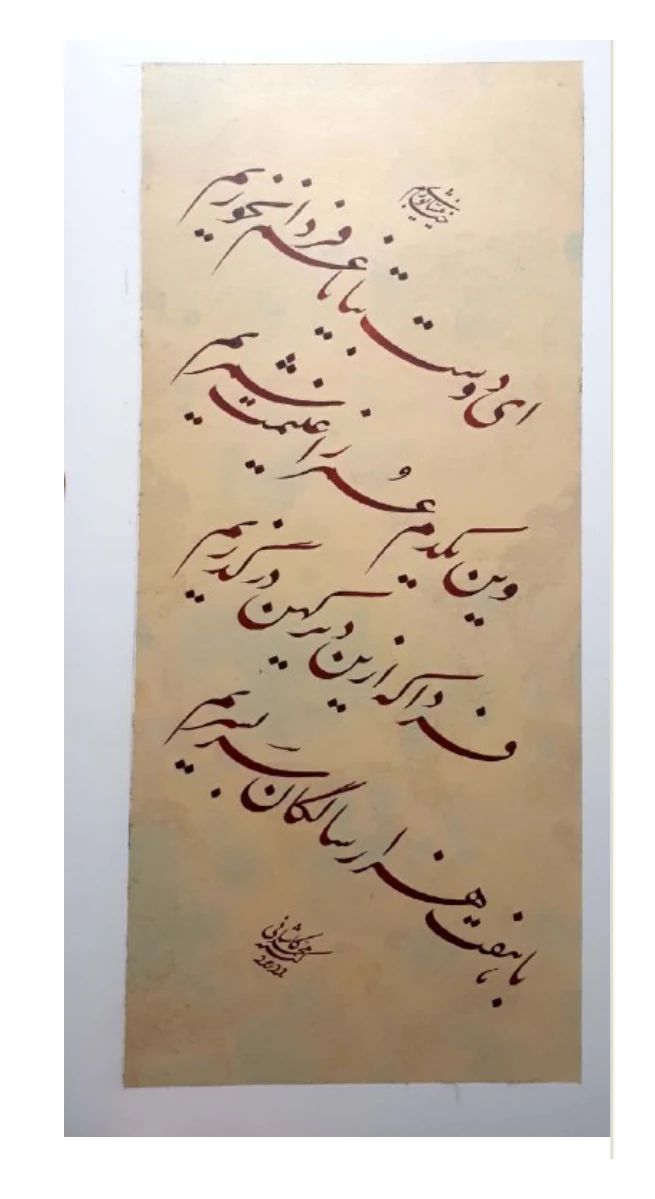 خیام نیشابوری
ای دوست بیا تا غم فردا نخوریم
وین یکدم عُمر را غنیمت شمریم
فردا که ازین دیر کهن درگذریم
با هفت هزار سالگان سر بسریم
کاشانی
2022